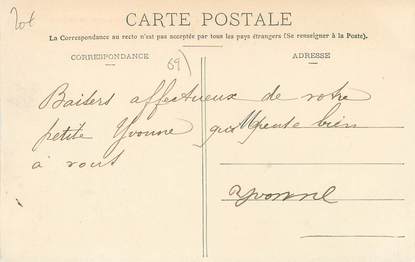 CARTE POSTALE
La Correspondance au recto n'est pas acceptée par tous les pays étrangers (Se renseigner à la Poste).
CORRESPONDANCE
ADRESSE
69
Baisers affectueux de votre
petite Yvonne qui pense bien
à vous
Yvonne